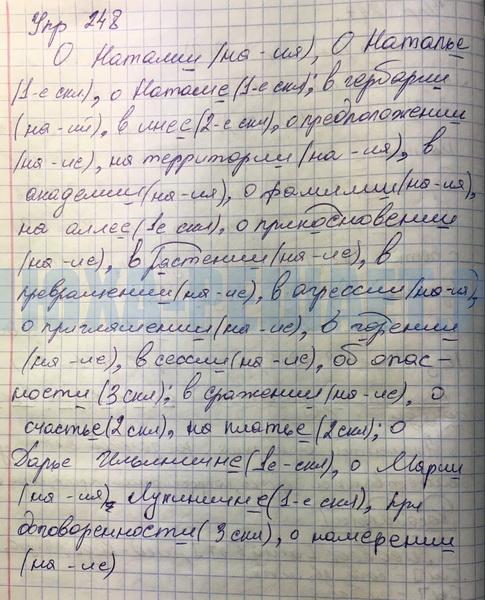 Упр 248
О Наталии (на -ия), О Наталье
(1-е скл), о Наташе (1-е скл); в гербарии
(на -ий), в лесе (2-е скл), о предположении
(на -ие), на территории (на -ия), в
академии (на -ия), о фамилии (на -ия),
на аллее (1е скл), о прикосновении
(на -ие), в растении (на -ие), в
превращении (на -ие), в агрессии (на -ия),
о приглашении (на -ие), о горении
(на -ие), в сессии (на -ие), об опас-
ности (3 скл); в сражении (на -ие), о
счастье (2 скл), на платье (2 скл); о
Дарье Ильиничне (1е -скл), о Марии
(на -ия) Лукиничне (1-е скл), при
договоренности (3 скл), о намерении
(на -ие)